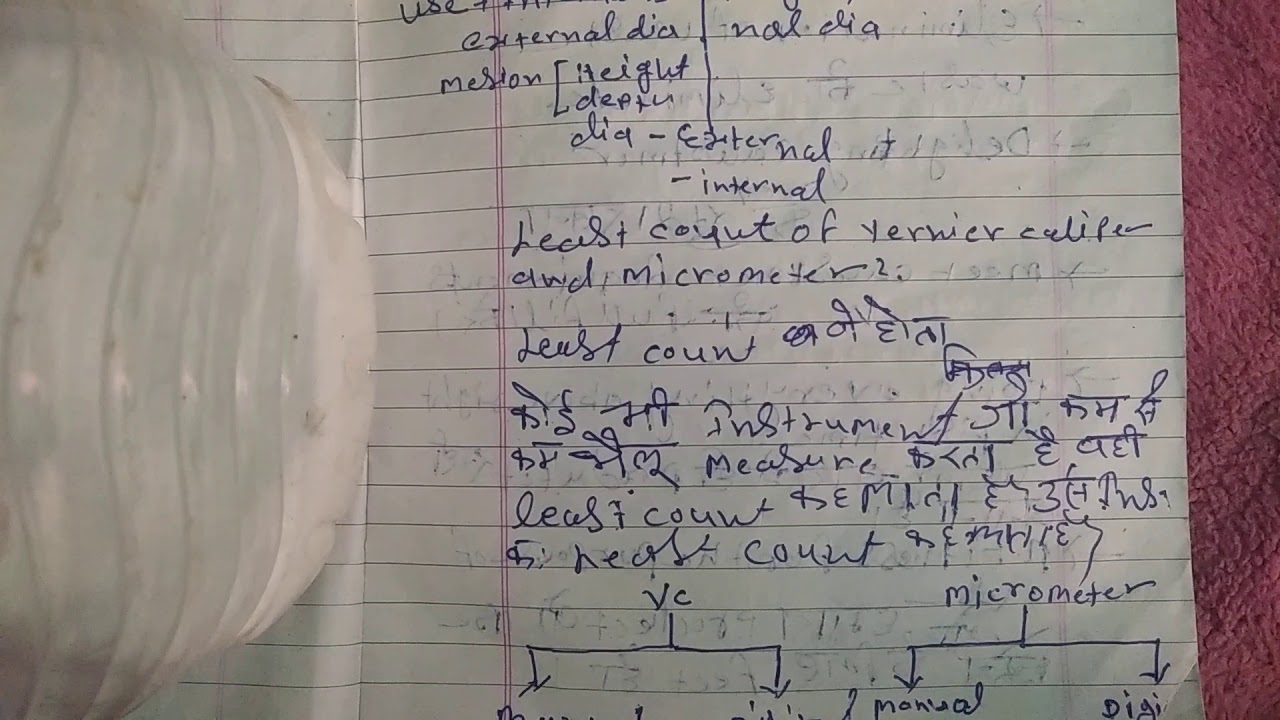 use
external dia | nal dia
mesion [ Height
depth
dia - External
- internal
Least count of vernier caliper
and micrometer?
Least count होता
कोई भी instrument जो कम से
कम measure करता है वही
least count कहलाता है उस ins.
क Least count
VC micrometer
manual Digi